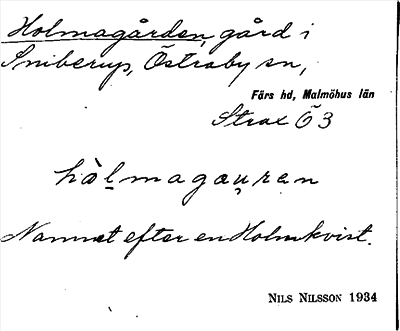 Holmagården, gård i
Sniberup, Östraby sn,
Färs hd, Malmöhus län
Strax Ö 3
hòl̲magæu̯ren
Namnet efter en Holmkvist.
NILS NILSSON 1934